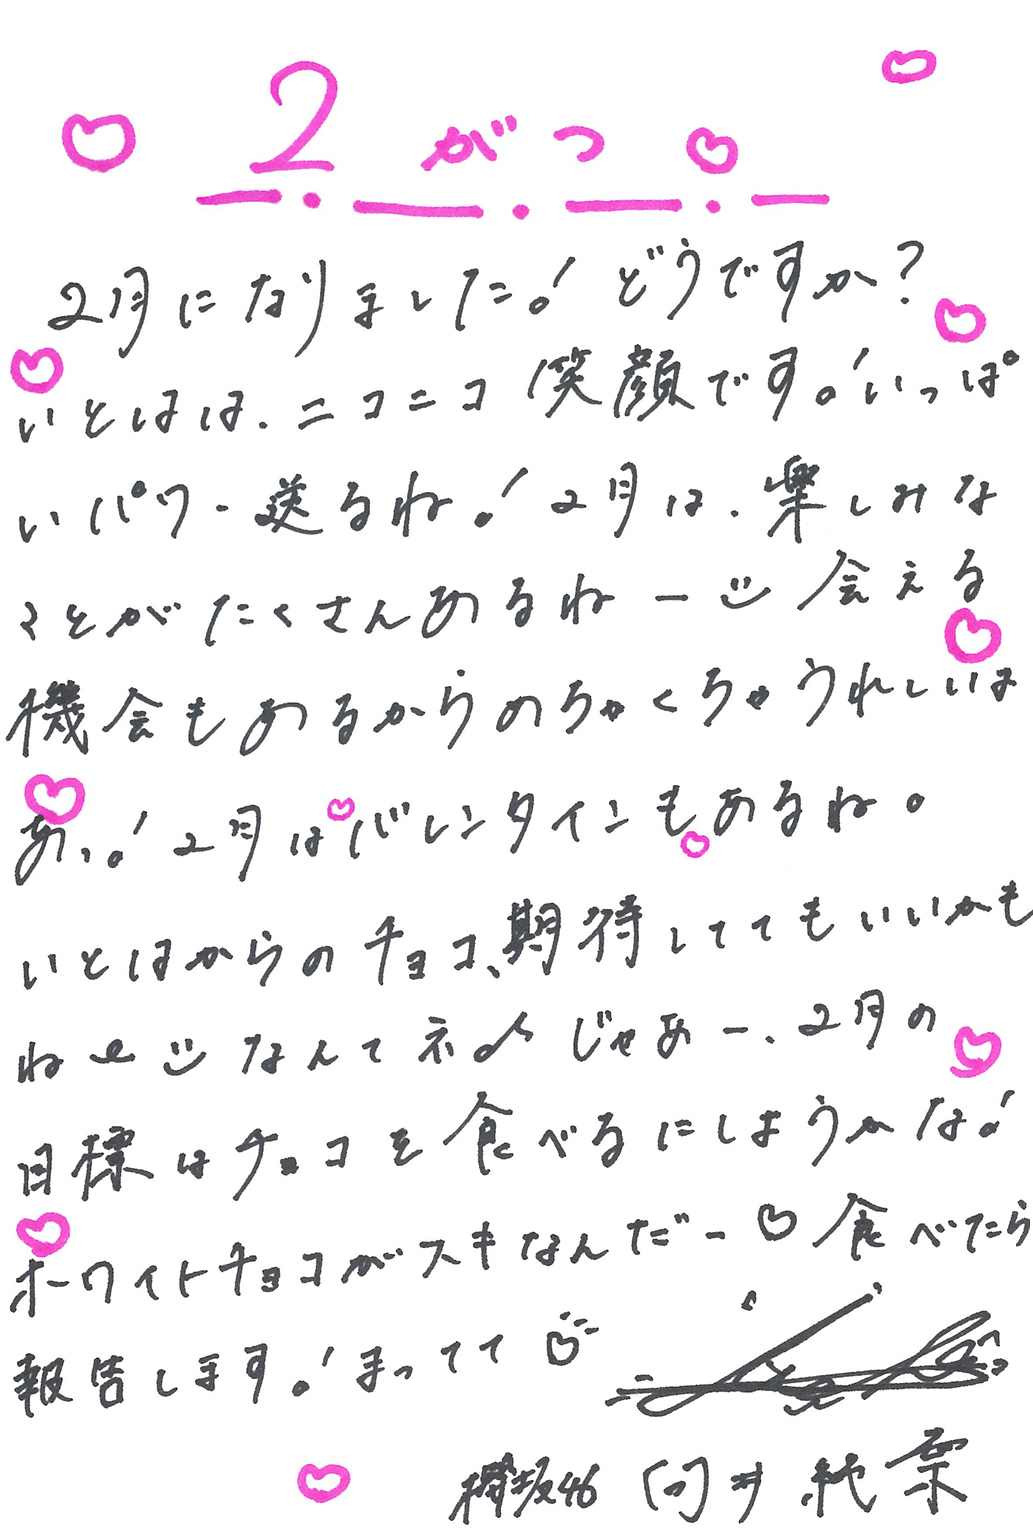 2がつ
2月になりました!どうですか?
いとはは、ニコニコ笑顔です!いっぱ
いパワー送るね!2月は、楽しみな
ことがたくさんあるねー 会える
機会もあるからめちゃくちゃうれしいよ
あっ!2月はバレンタインもあるね。
いとはからのチョコ、期待しててもいいかも
ねー なんてネ♪じゃあー、2月の
目標はチョコを食べるにしようかな!
ホワイトチョコがスキなんだー♡食べたら
報告します!まってて
欅坂46 向井純葉